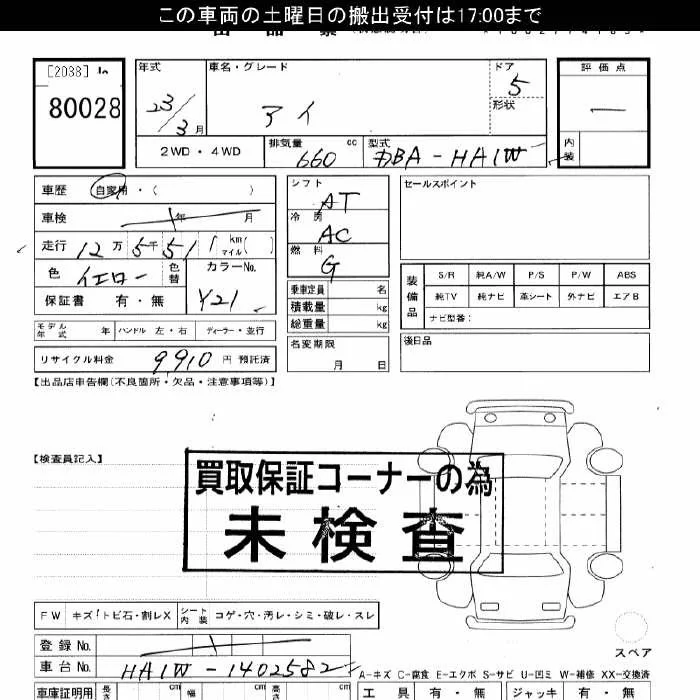 この車両の土曜日の搬出受付は17:00まで
[2038]
80028
年式 23/3月
車名・グレード アイ
ドア 5
形状
評価点 ―
内装
2WD・4WD
排気量 660 cc
型式 DBA-HA1W
車歴 自家用・( )
車検 年 月
走行 12万5千51 km マイル( )
色 イエロー 色替
カラーNo. Y21
保証書 有・無
シフト AT
冷房 AC
燃料 G
乗車定員 名
積載量 kg
総重量 kg
セールスポイント
装備品
S/R 純A/W P/S P/W ABS
純TV 純ナビ 革シート 外ナビ エアB
ナビ型番:
モデル年式 年 ハンドル 左・右 ディーラー・並行
リサイクル料金 9910 円 預託済
名変期限 月 日
後日品
【出品店申告欄(不良箇所・欠品・注意事項等)】
【検査員記入】
買取保証コーナーの為
未検査
FW キズ!トビ石・割レX シート内装 コゲ・穴・汚レ・シミ・破レ・スレ
スペア
登録No.
車台No. HA1W-1402582
A-キズ C-腐食 E-エクボ S-サビ U-凹ミ W-補修 XX-交換済
車庫証明用 長さ cm 幅 cm 高さ cm
工具 有・無 ジャッキ 有・無